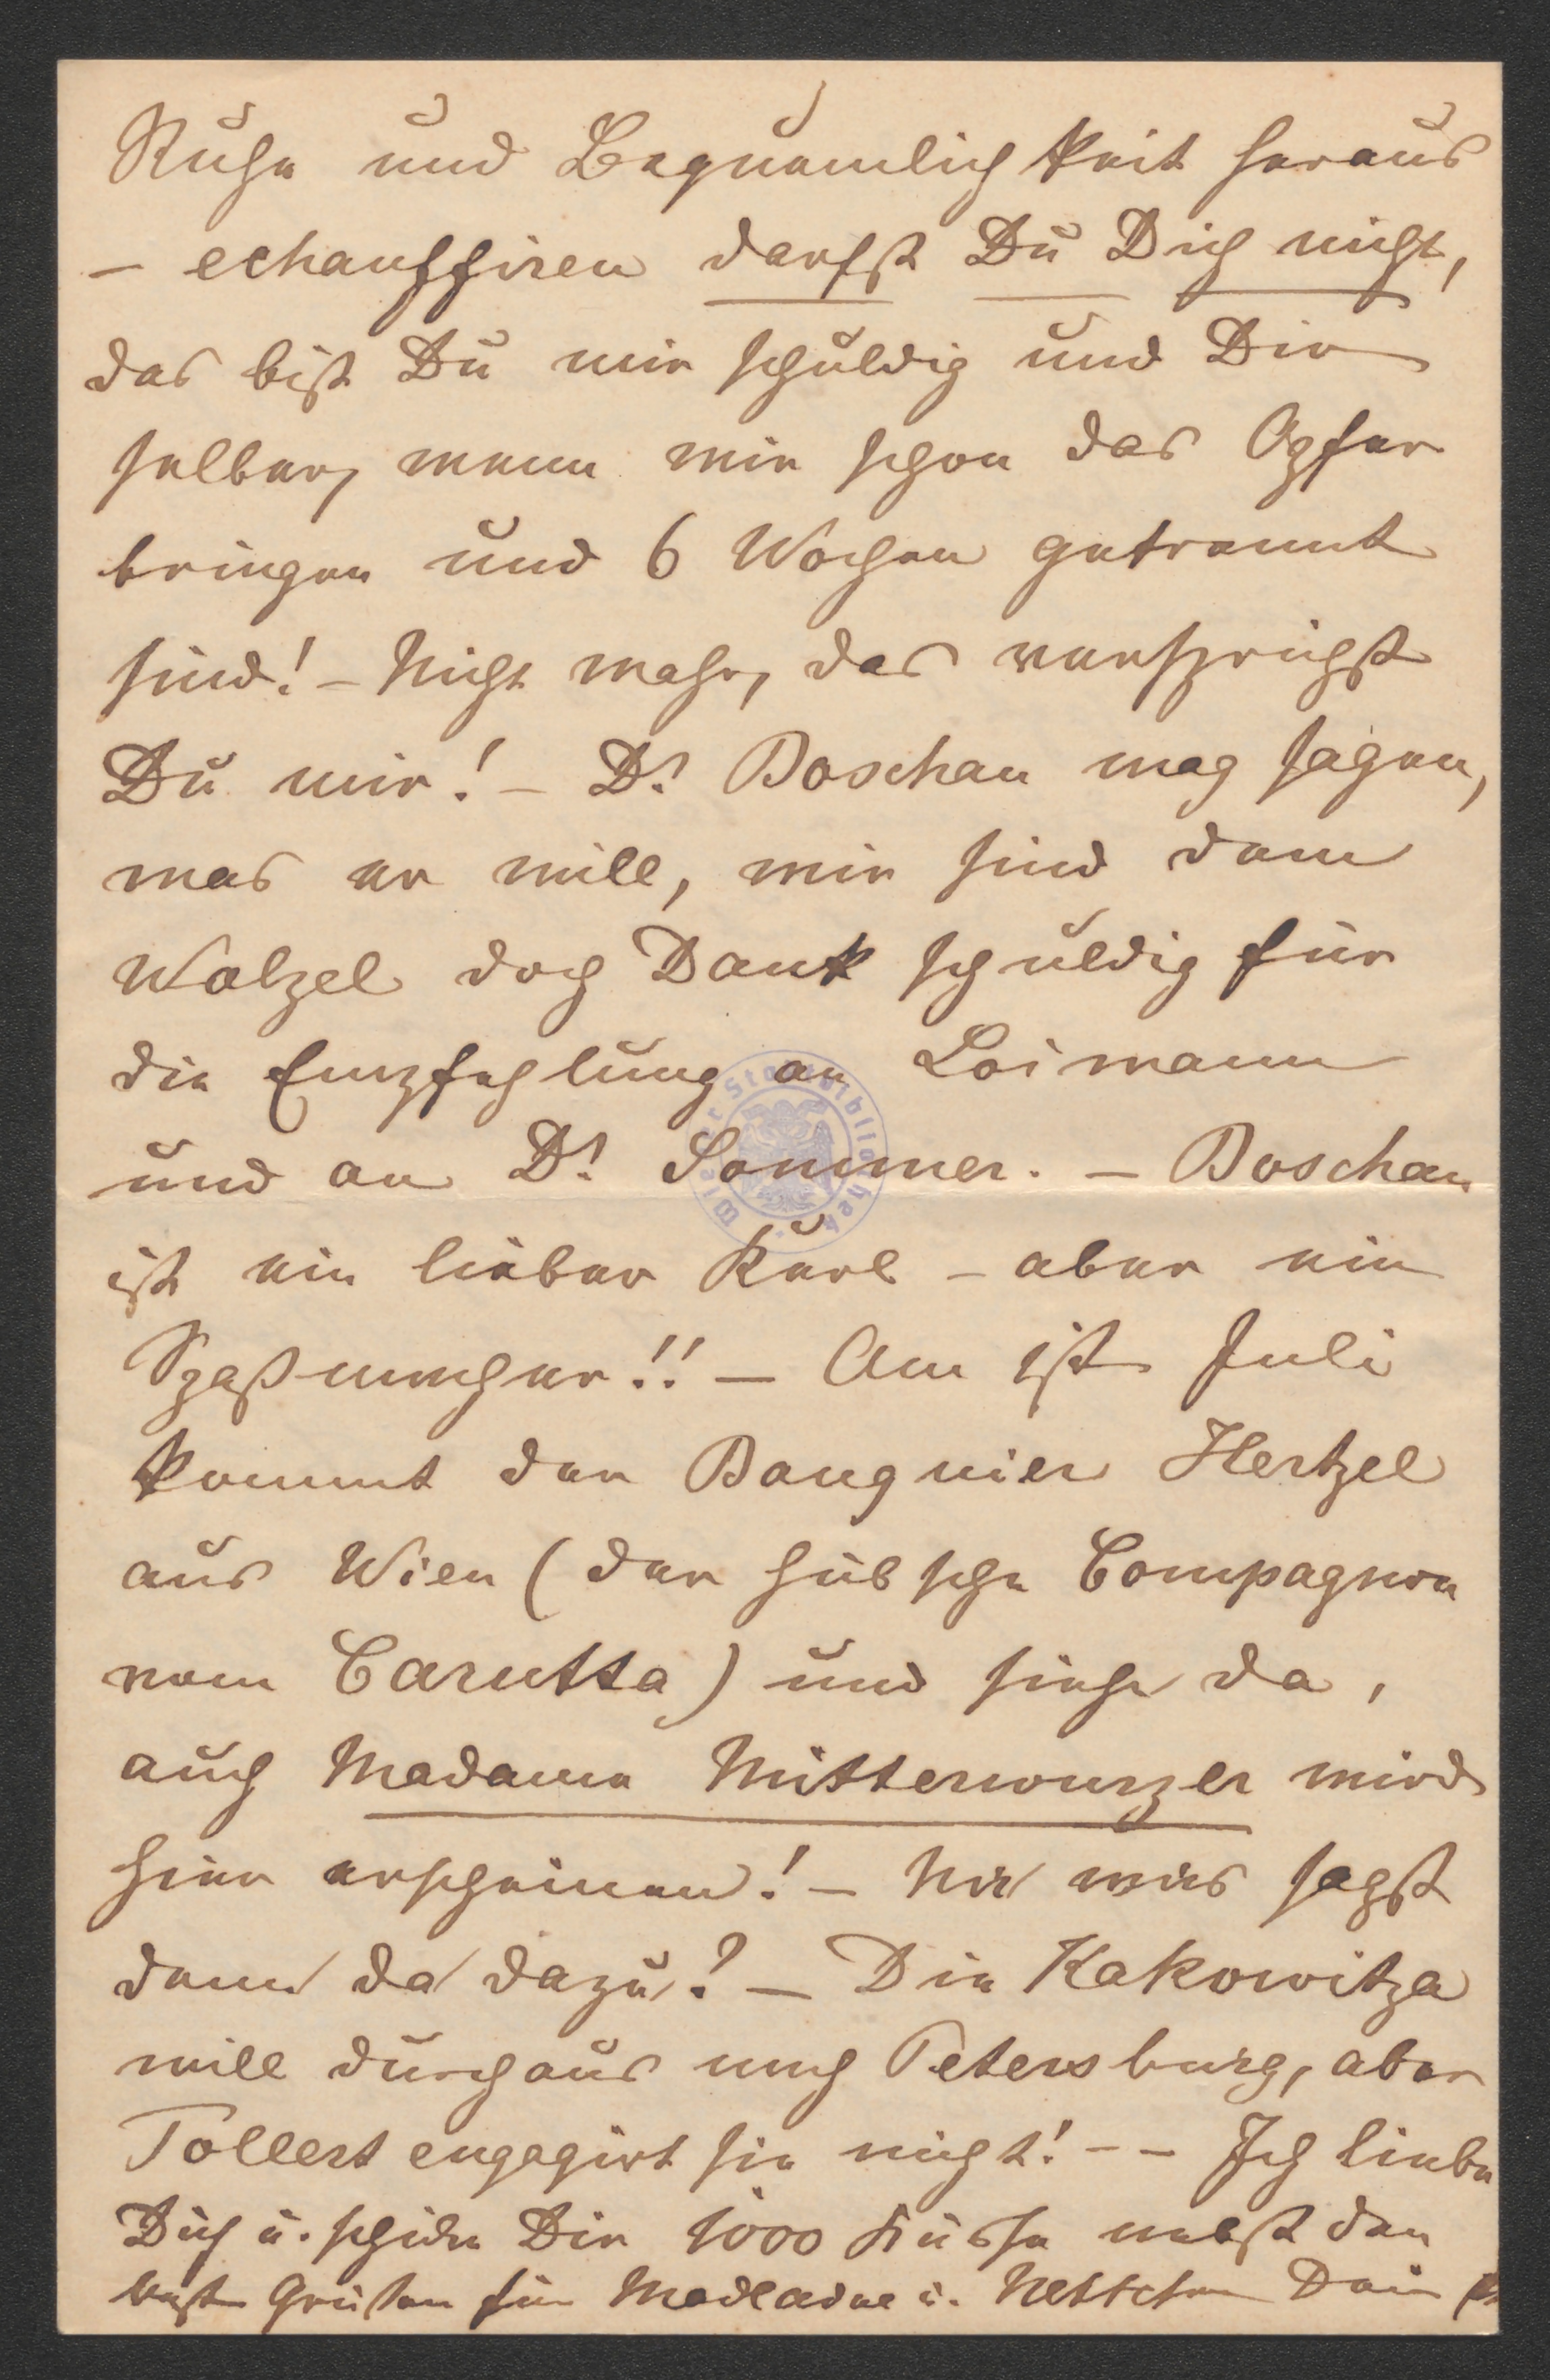 Ruhe und Bequemlichkeit heraus
– echauffiren darfst Du Dich nicht,
das bist Du mir schuldig und Dir
selber, wenn wir schon das Opfer
bringen und 6 Wochen getrennt
sind! – Nicht wahr, das versprichst
Du mir! – Dr Boschan mag sagen,
was er will, wir sind dem
Walzel doch Dank schuldig für
die Empfehlung an Loimann
und an Dr Sommer. – Boschan
ist ein lieber Kerl – aber ein
Spaßmacher!! – Am 1st Juli
kommt der Banquier Hertzel
aus Wien (der hübsche Compagnon
vom Carutta) und siehe da,
auch Madame Mitterwurzer wird
hier erscheinen! – Na was sagst
denn da dazu? – Die Kakowitza
will durchaus nach Petersburg, aber
Tollert engagirt sie nicht! – – Ich liebe
Dich u. schicke Dir 1000 Küsse nebst den
best Grüßen für u. Nettchen Dein
Wiener Stadtbibliothek